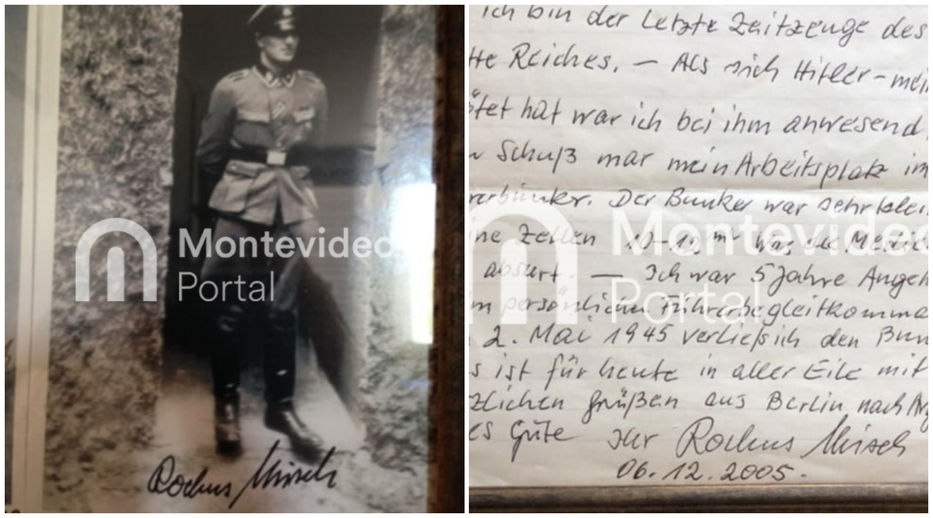 Montevideo
Portal
Rochus Misch
ich bin der letzte Zeitzeuge des
tte Reiches. — Als sich Hitler – mei
ötet hat war ich bei ihm anwesend.
Schuß war mein Arbeitsplatz im
rerbunker. Der Bunker war sehr klei
ine Zellen 10-12 m² was die Medien
absurt. — Ich war 5 Jahre Angeh
m persönlichen Führerbegleitkomma
2. Mai 1945 verließ ich den Bun
s ist für heute in aller Eile mit
zlichen Grüßen aus Berlin nach Ar
es Gute Ihr Rochus Misch
06.12.2005.
Montevideo
Portal